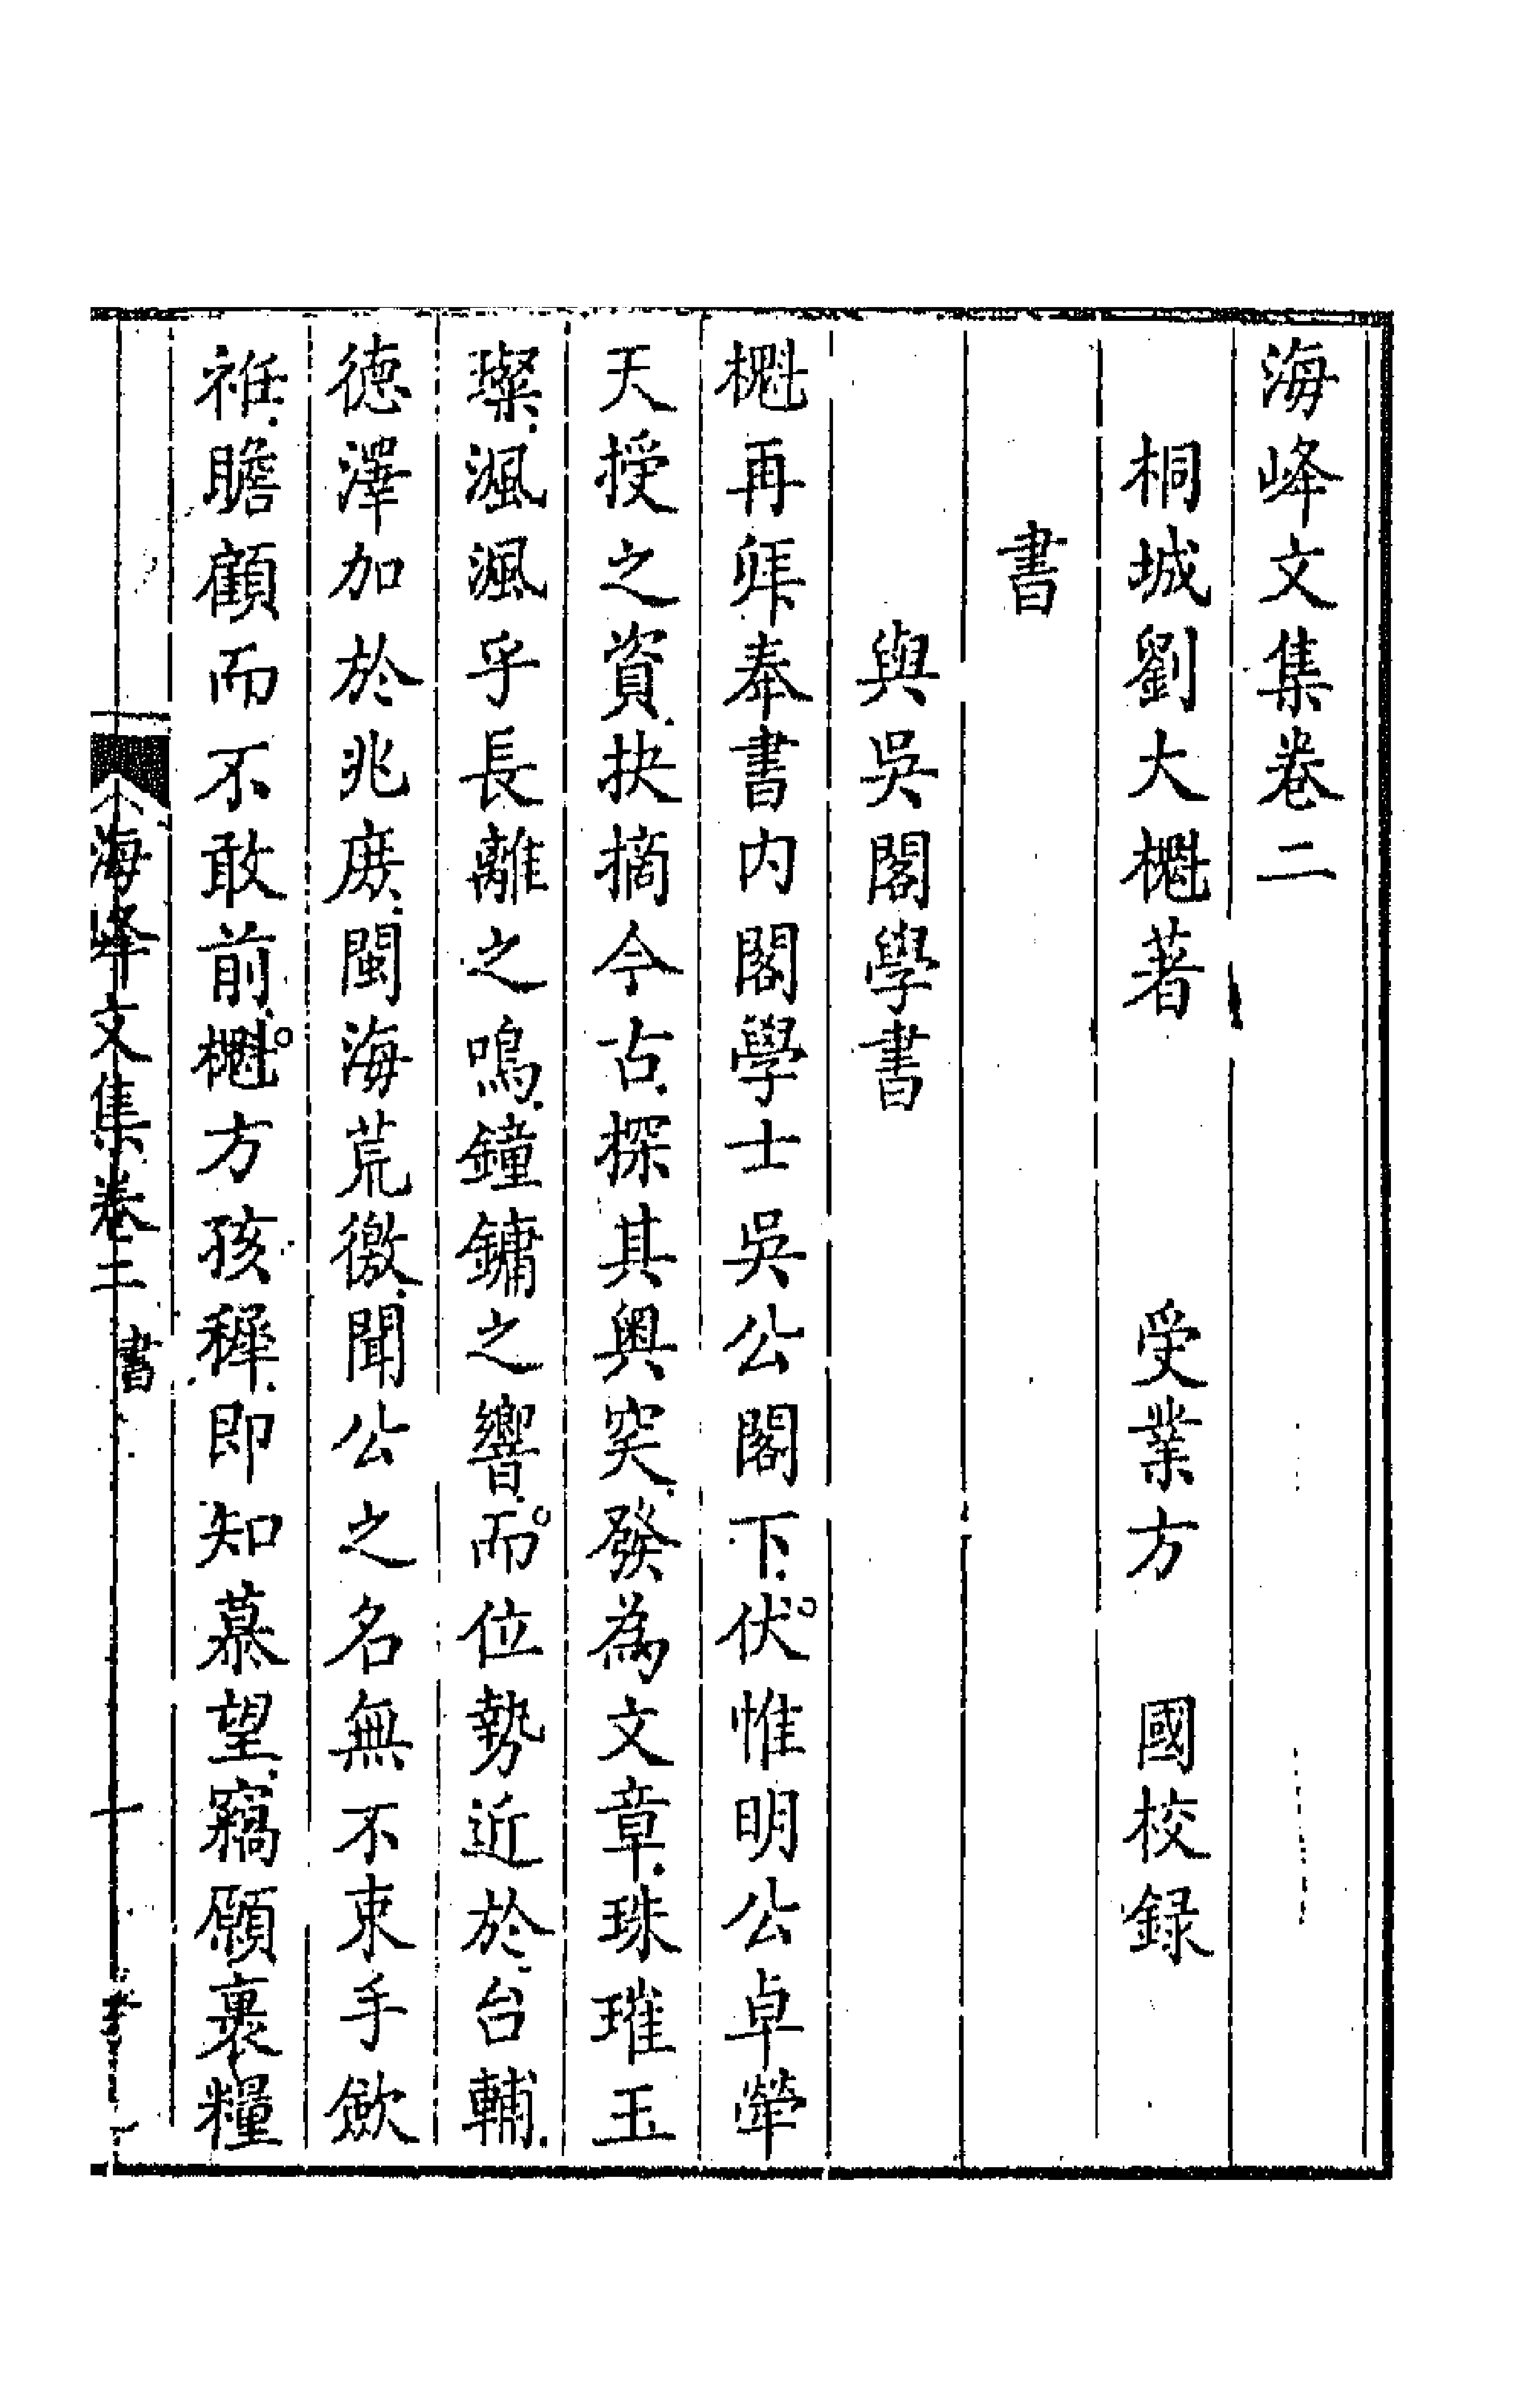 海峰文集卷二
桐城劉大櫆著　受業方　國校錄
書
與吳閣學書
櫆再拜奉書内閣學士吳公閣下伏惟明公卓犖
天授之資抉摘今古探其奥突發為文章珠璀玉
璨渢渢乎長離之鳴鐘鏞之響而位勢近於台輔
德澤加於兆庶閩海荒徼聞公之名無不束手歛
袵瞻顧而不敢前櫆方孩穉即知慕望竊願裹糧
海峰文集卷二　書　十